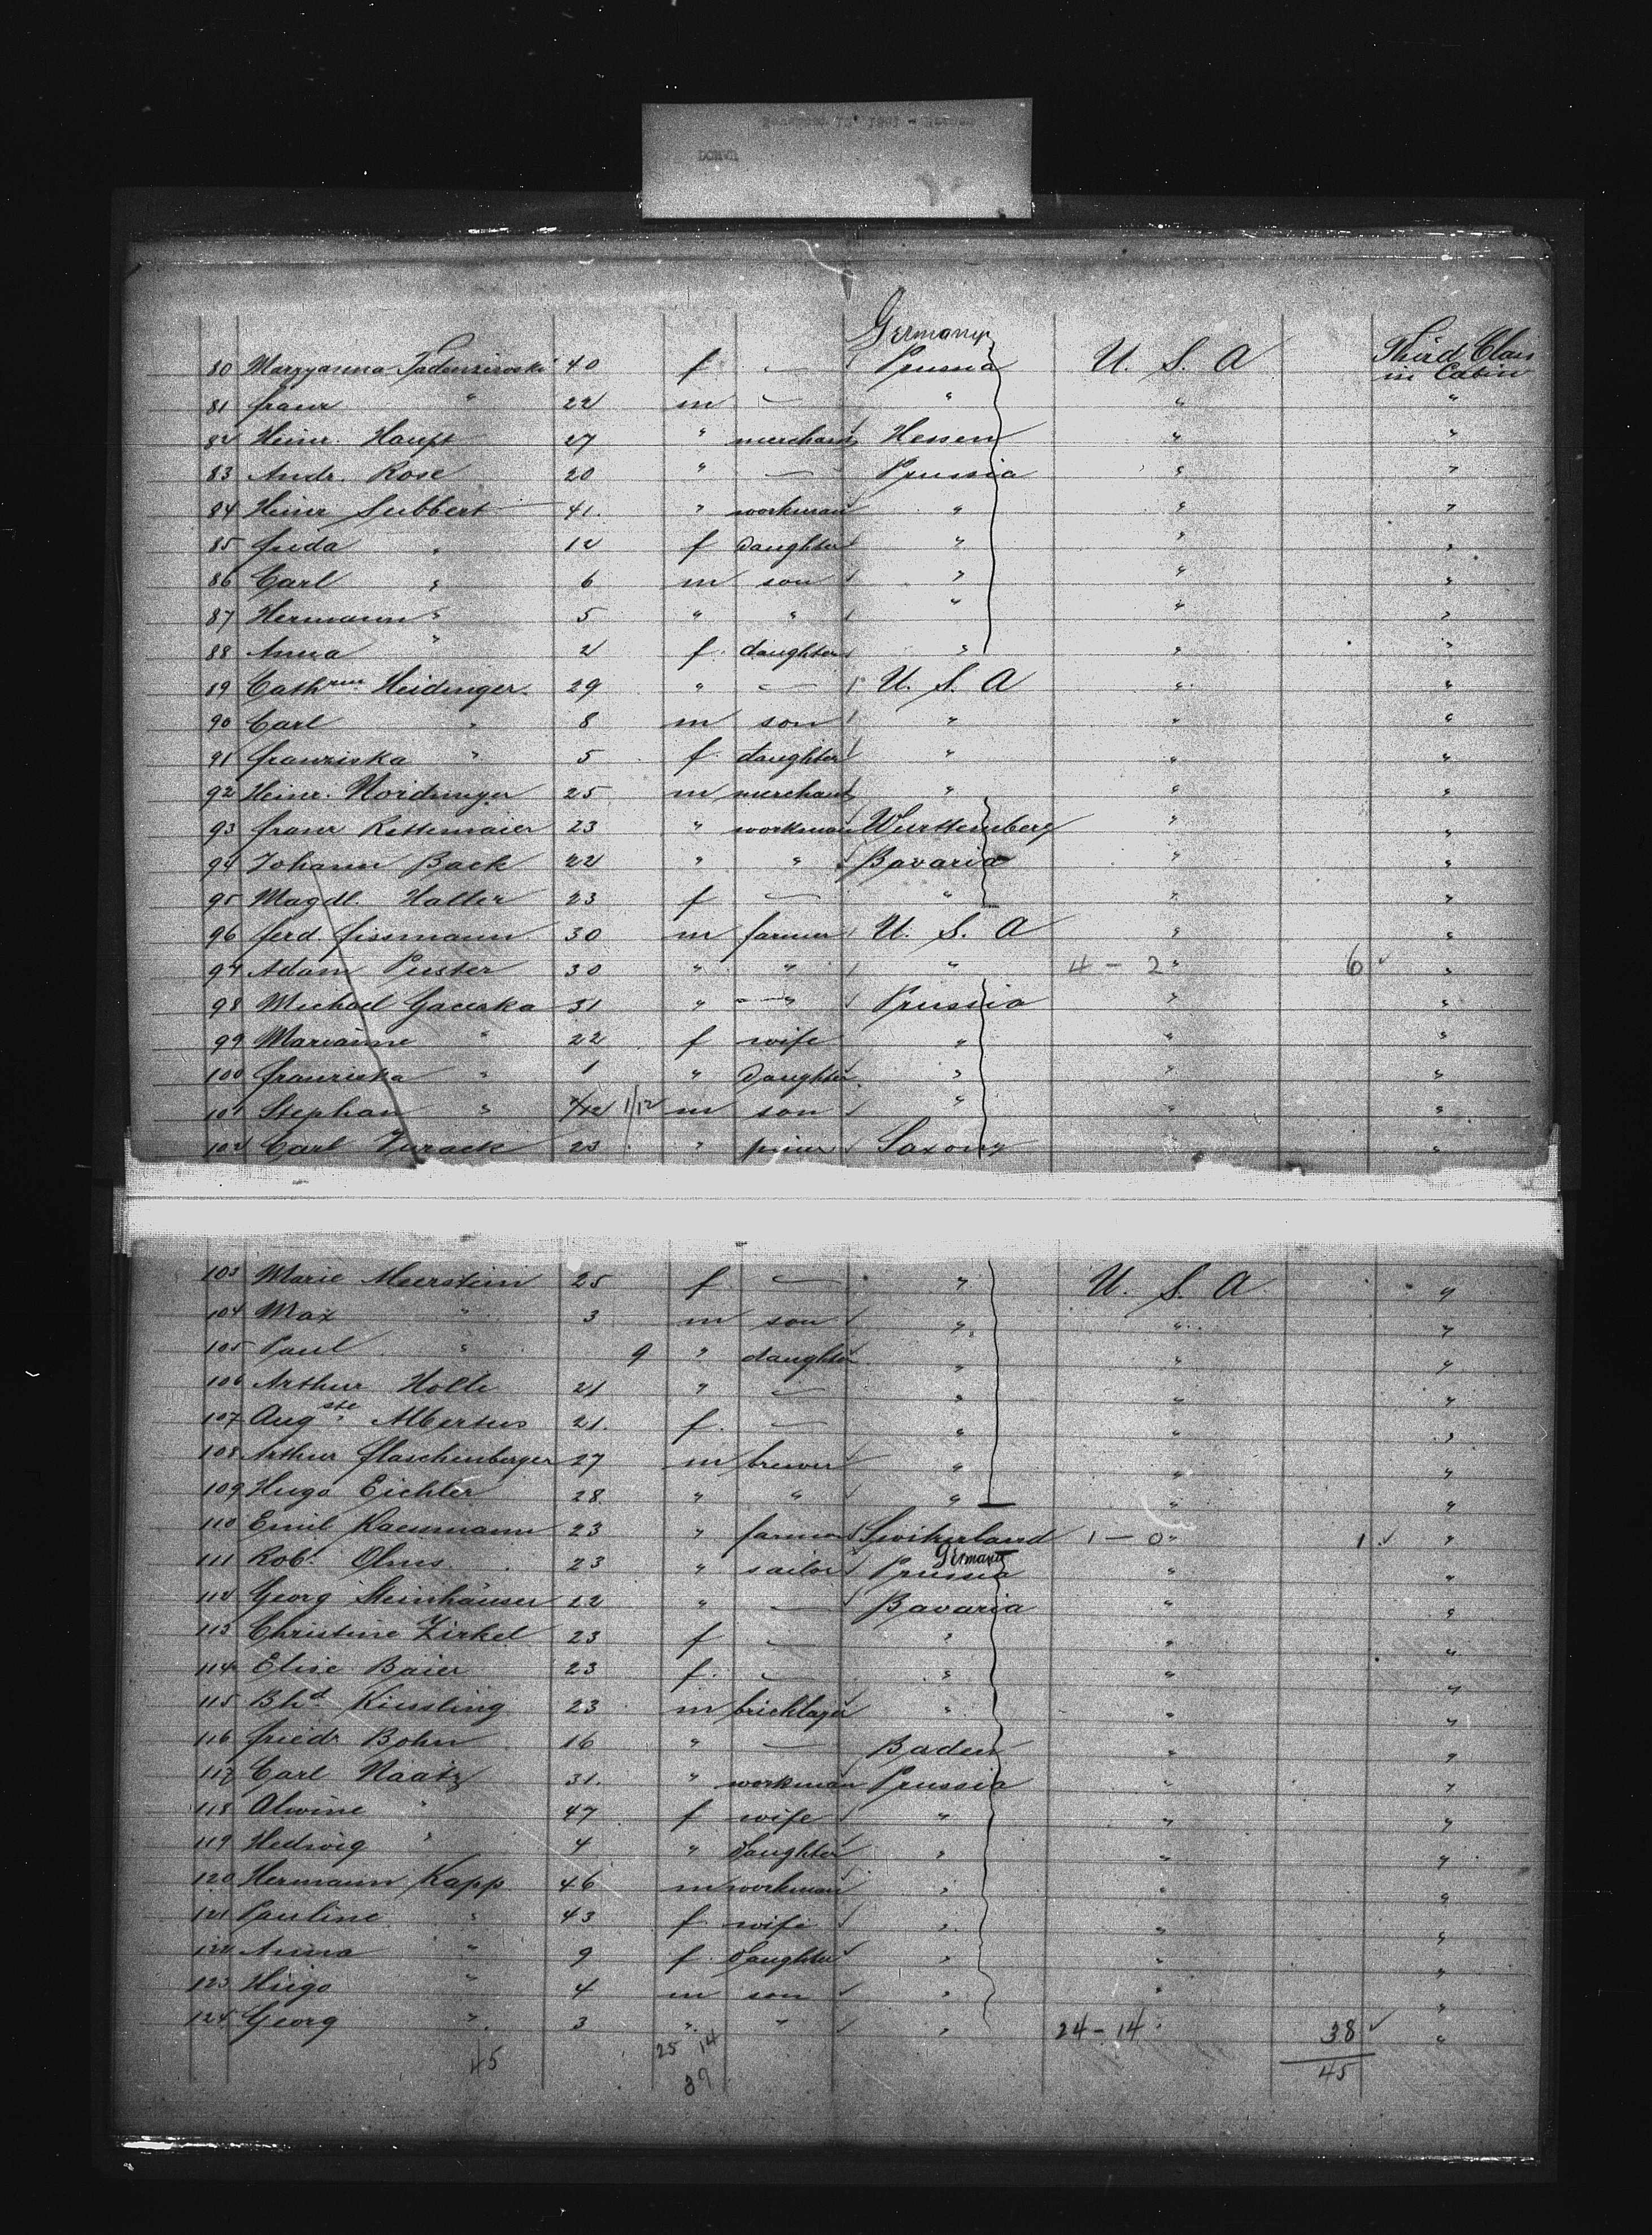 Germany
80 Maryanna 40 f — Prussia U. S. A Third Class
in Cabin
81 Franz " 22 m — " " "
82 Heinr. Haupt 27 " merchant Hessen " "
83 Andr. Rose 20 " — Prussia " "
84 Heinr. Lubbert 41. " workman " " "
85 Frieda " 12 f daughter " " "
86 Carl " 6 m son " " "
87 Hermann " 5 " " " " "
88 Anna " 2 f. daughter " " "
89 Cathrine Heidinger. 29 " — U. S. A " "
90 Carl " 8 m son " " "
91 Franziska " 5 f. daughter " " "
92 Heinr. 25 m merchant " " "
93 Franz Rettemaier 23 " workman Wurttemberg " "
94 Johann Back 22 " " Bavaria " "
95 Magdl. Haller 23 f — " " "
96 Ferd. Fissmann 30 m farmer U. S. A " "
97 Adam Puster 30 " " " 4 – 2 " 6 "
98 Michael Gaceska 31 " " Prussia " "
99 Marianne " 22 f wife " " "
100 Franziska " 1 " Daughter " " "
101 Stephan " 1/12 m son " " "
102 Carl Zurack 23 " Saxony "
103 Marie Meerstein 25 f — " U. S. A "
104 Max " 3 m son " " "
105 Paul " 9 " daughter " " "
106 Arthur Holle 21 " — " " "
107 Augste Albertus 21. f. — " " "
108 Arthur Flaschenberger 27 m brewer " " "
109 Hugo Eichler 28. " " " " "
110 Emil Kaessmann 23 " farmer Switzerland 1 – 0 " 1 "
Germany
111 Robt. Olms. 23 " sailor Prussia " "
112 Georg Steinhäuser 22 " — Bavaria " "
113 Christine Zirkel 23 f — " " "
114 Elise Baier 23 f. — " " "
115 Bhd Kiessling 23 m bricklayer " " "
116 Friedr Bohn 16 " — Baden " "
117 Carl Naatz 31. " workman Prussia " "
118 Alwine " 47 f wife " " "
119 Hedwig " 4 " Daughter " " "
120 Hermann Kapp 46 m workman " " "
121 Pauline " 43 f wife " " "
122 Anna " 9 f. Daughter " " "
123 Hugo " 4 m son " " "
124 Georg " 3 " " " 24 – 14 " 38 "
45 25 14 45
39